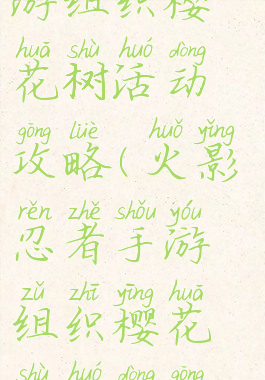 游组织樱
huā shù huó dòng
花树活动
gōng lüè huǒ yǐng
攻略(火影
rěn zhě shǒu yóu
忍者手游
zǔ zhī yīng huā
组织樱花
shù huó dòng gōng